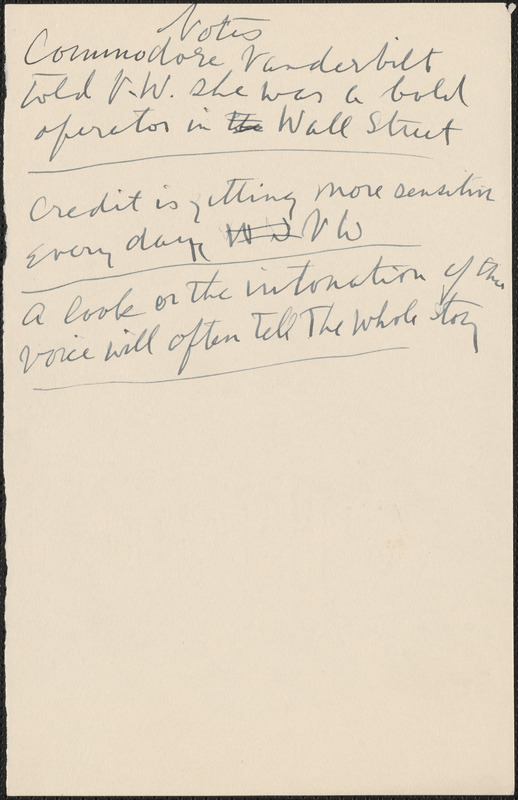 Notes
Commodore Vanderbilt
told V.W. she was a bold
operator in the Wall Street
Credit is getting more sensitive
every day V W
A look or the intonation of the
voice will often tell the whole story